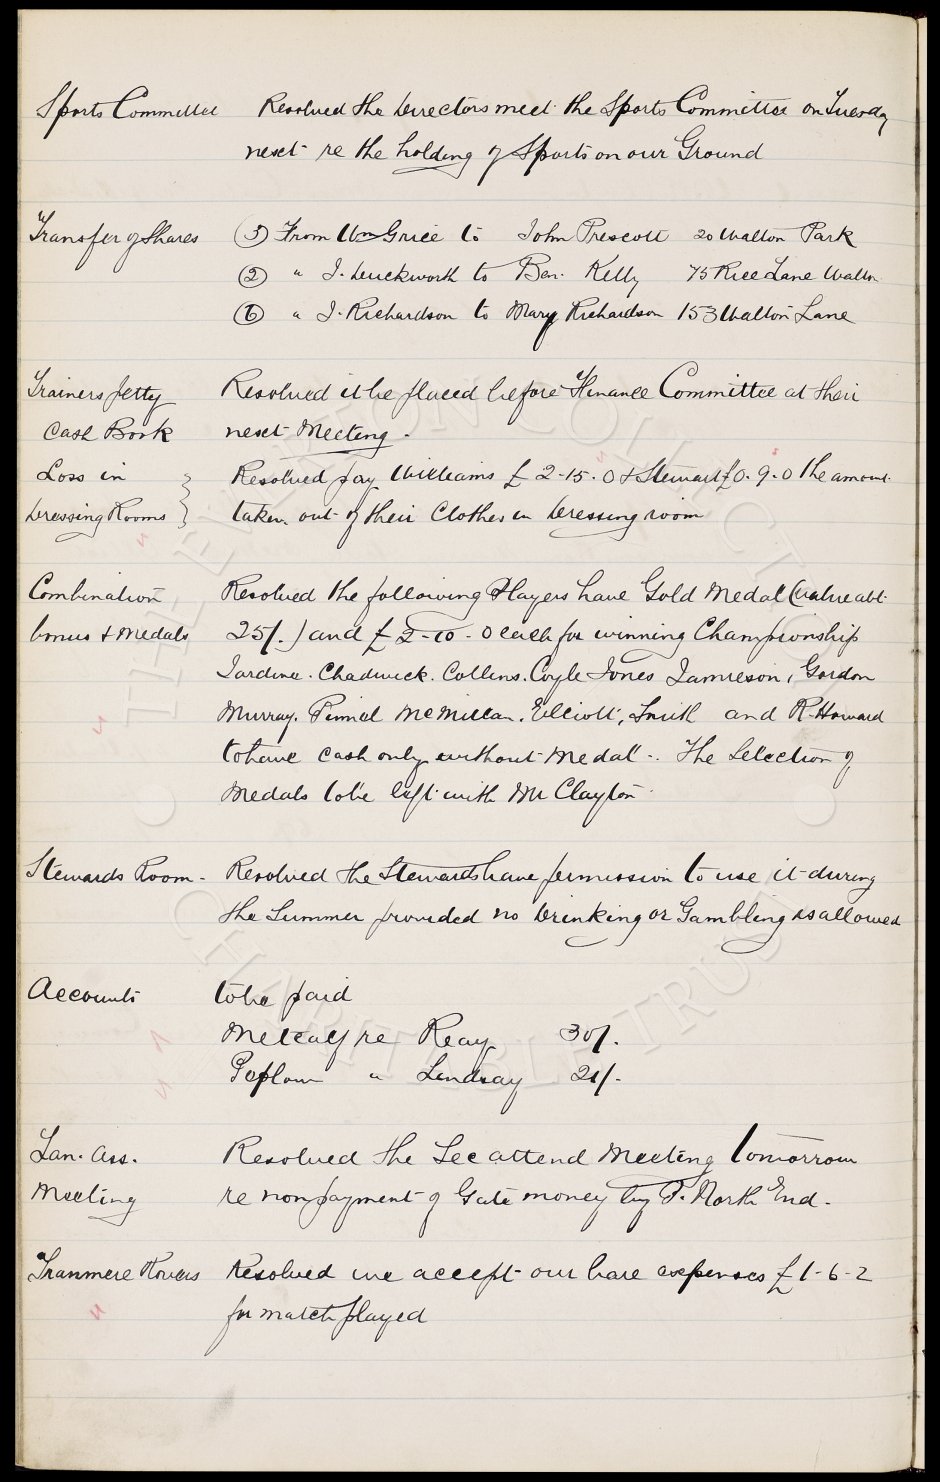 Sports Committee Resolved the Directors meet the Sports Committee on Tuesday
next re the holding of Sports on our Ground
Transfer of Shares (5) From Wm Grice to John Prescott 20 Walton Park
(2) " J. Duckworth to Ben. Kelly 75 Rice Lane Walton
(6) " J. Richardson to Mary Richardson 153 Walton Lane
Trainers Petty Resolved it be placed before Finance Committee at their
Cash Book next Meeting.
Loss in Resolved pay Williams £2-15-0 & Stewart £0-9-0 the amount
Dressing Rooms taken out of their Clothes in Dressing room
Combination Resolved the following Players have Gold Medal (value abt.
bonus & Medals 25/-) and £2-10-0 each for winning Championship
Jardine. Chadwick. Collins. Coyle Jones Jamieson, Gordon
Murray. Pinnel McMillan. Elliott, Smith and R. Howard
to have cash only without Medal. The Selection of
Medals to be left with Mr Clayton.
Stewards Room - Resolved the Stewards have permission to use it during
the Summer provided no Drinking or Gambling is allowed
Accounts to be paid
Metcalf re Reay 30/-
Poplow " Lindsay 21/-
Lan. Ass. Resolved the Sec attend Meeting tomorrow
Meeting re non payment of Gate money by P. North End.
Tranmere Rovers Resolved we accept our bare expenses £1-6-2
for match played
THE EVERTON COLLECTION
CHARITABLE TRUST